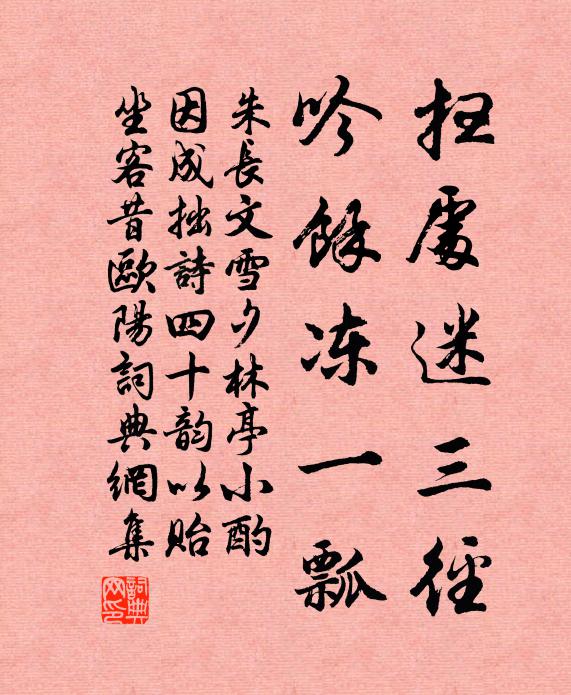 扫處迷三徑
吟餘冻一瓢
朱長文雪夕林亭小酌
因成拙詩四十韵以貽
坐客昔歐陽詞典網集
詞典
网印